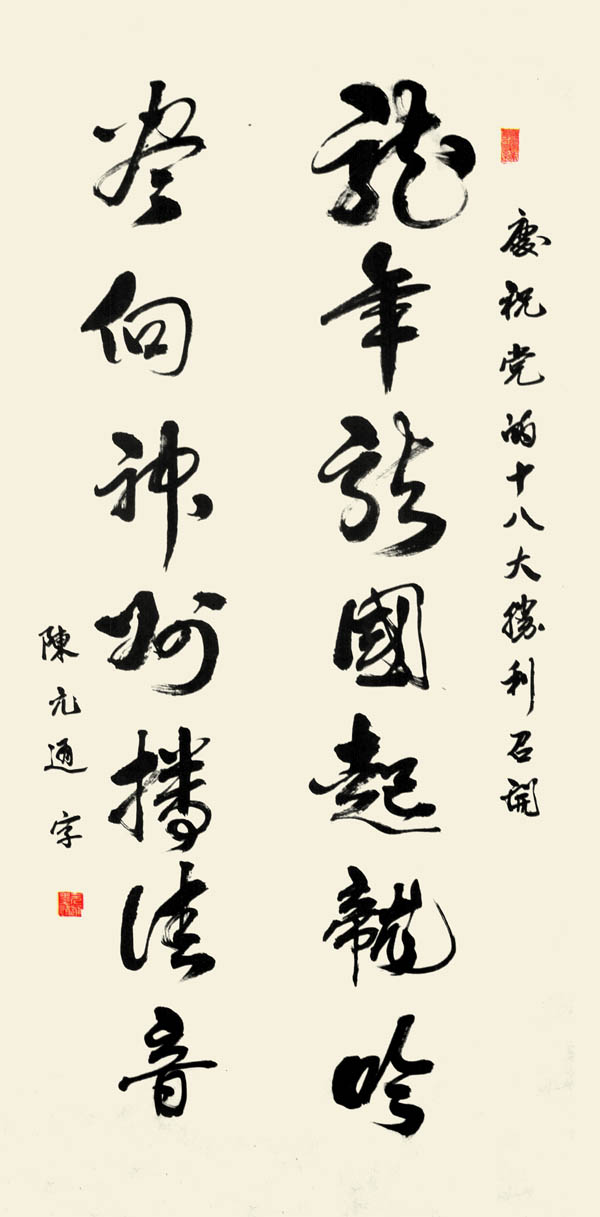 慶祝党的十八大勝利召開
龍年龍國起龍吟
向神州播佳音
陳元通字